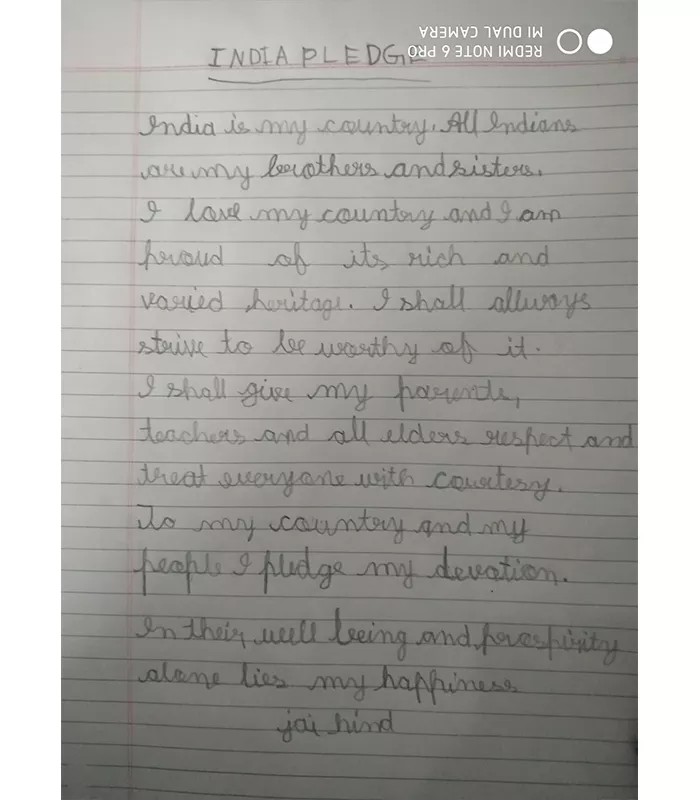 REDMI NOTE 6 PRO
MI DUAL CAMERA
INDIA PLEDGE
India is my country. All Indians
are my brothers and sisters.
I love my country and I am
proud of its rich and
varied heritage. I shall allways
strive to be worthy of it.
I shall give my parents,
teachers and all elders respect and
treat everyone with courtesy.
To my country and my
people I pledge my devotion.
In their, well being and prospirity
alone lies my happiness
jai hind